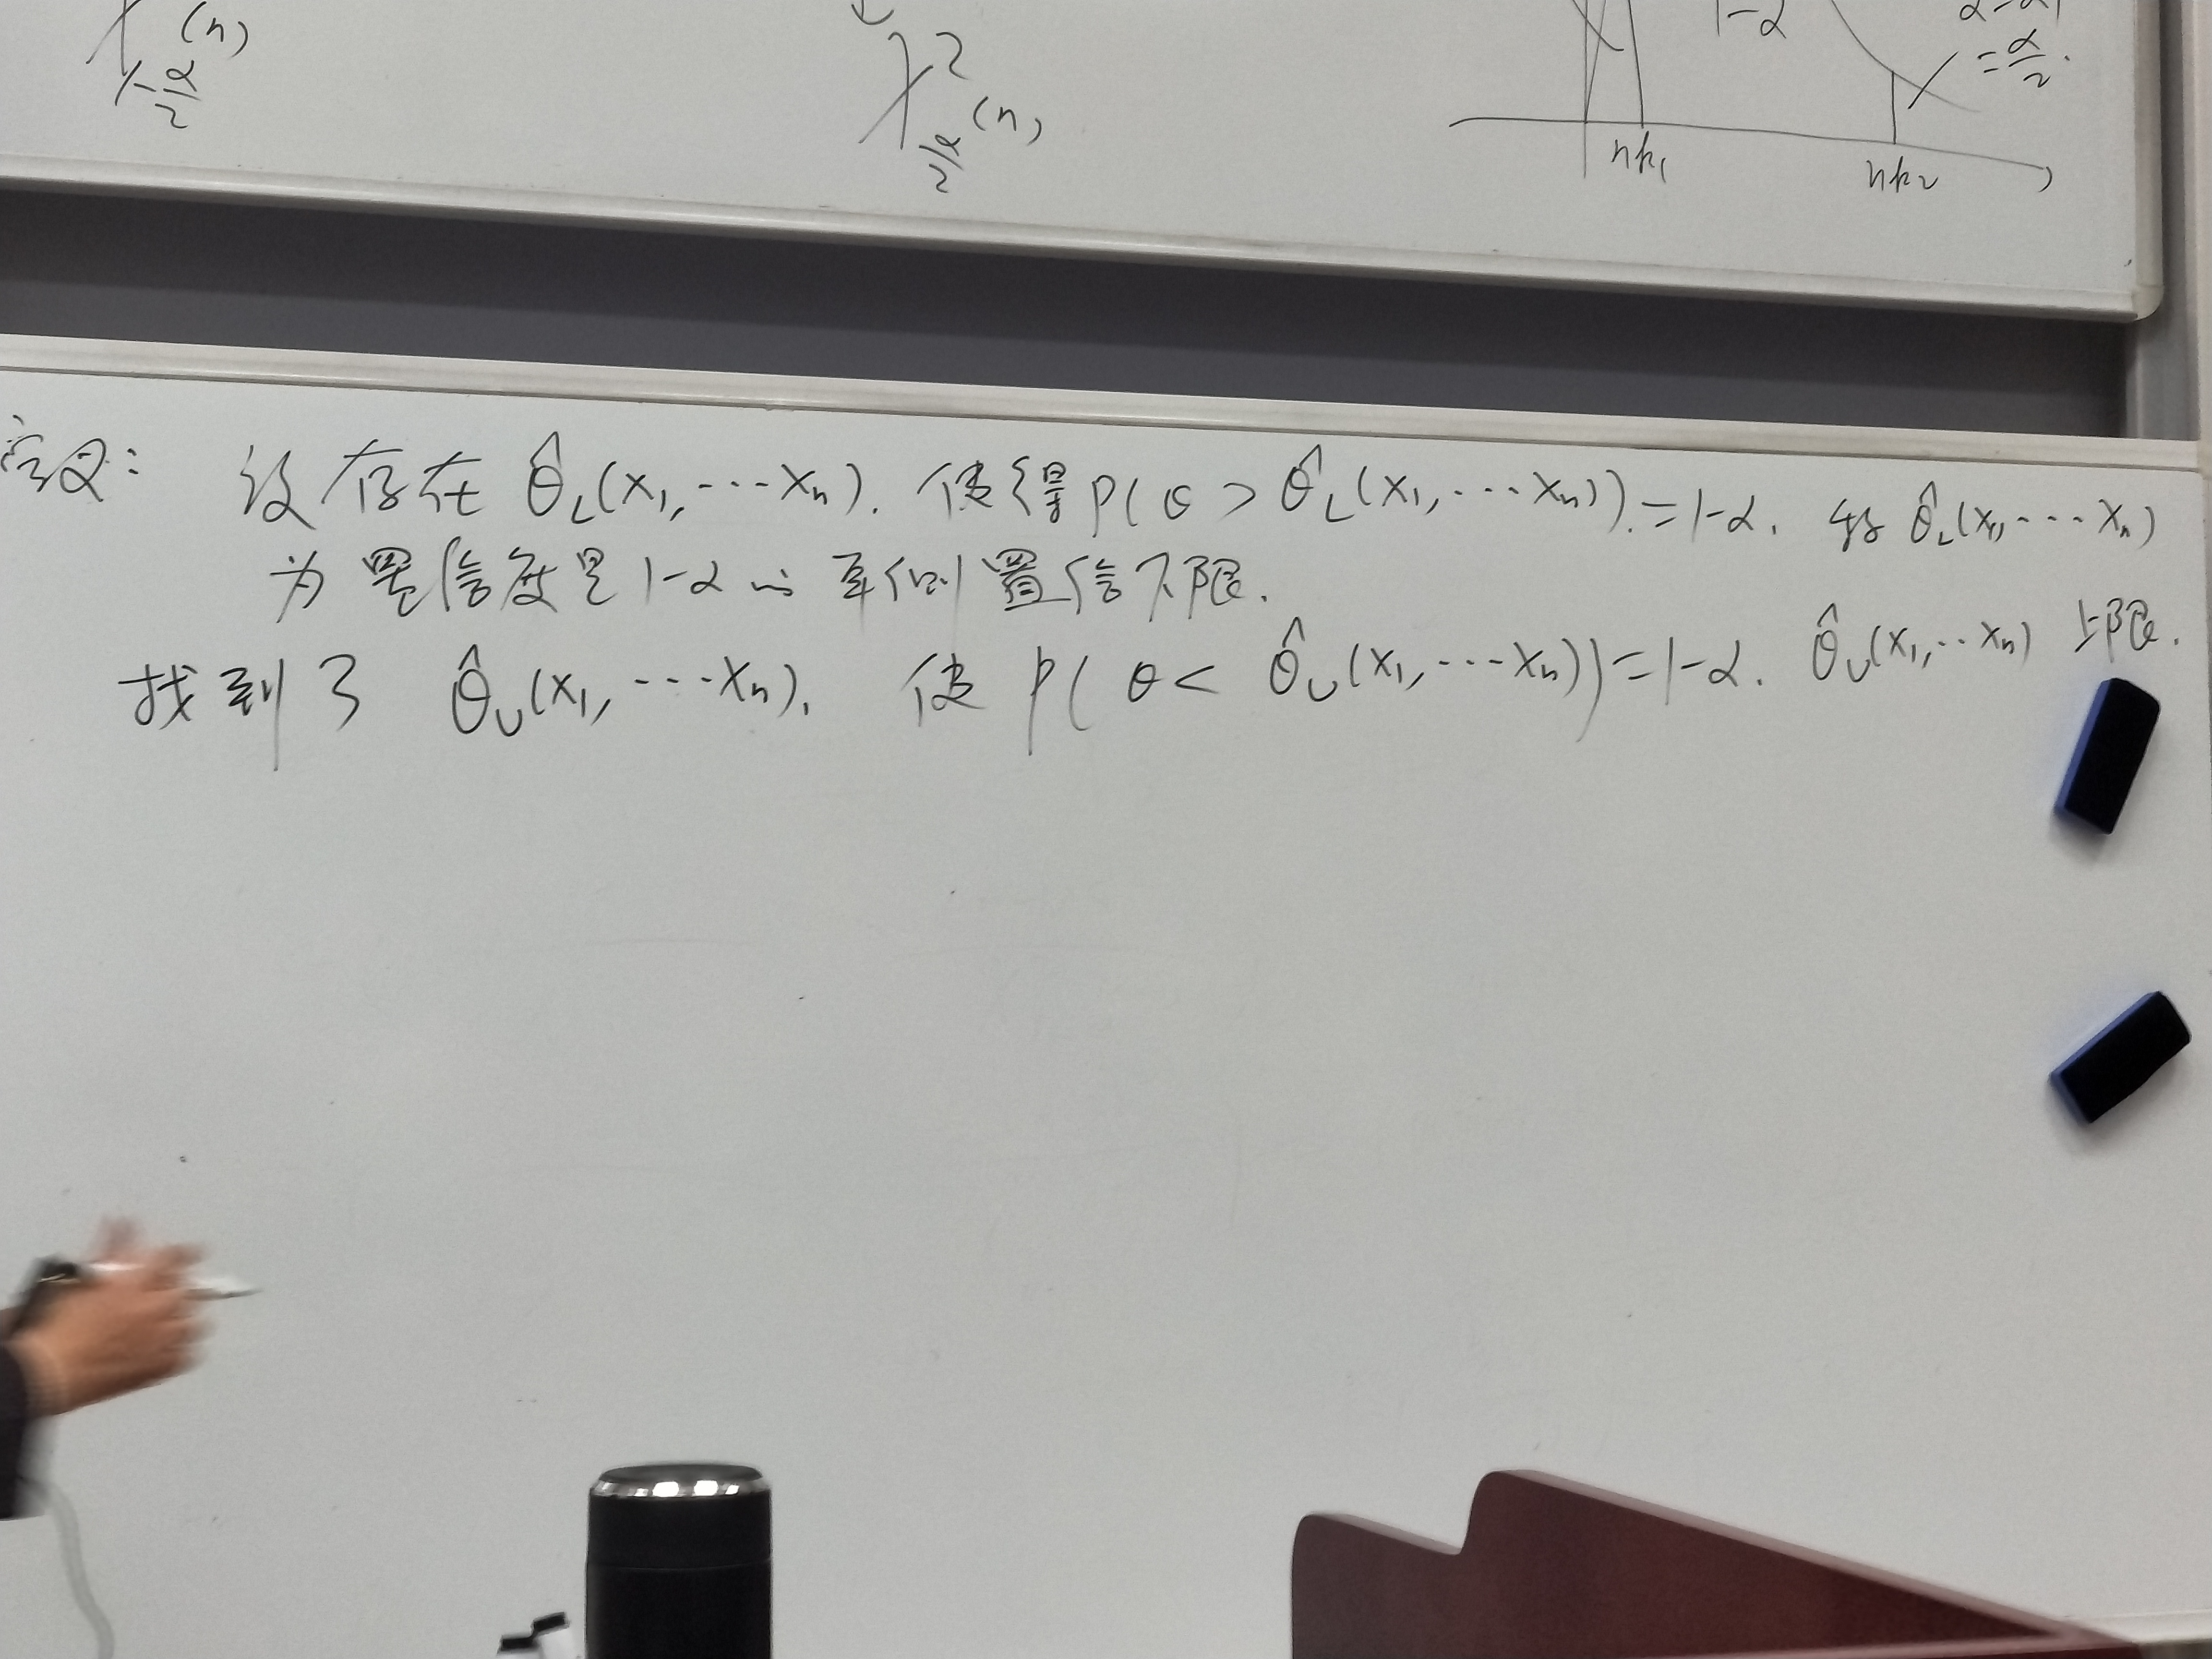 χ_{1-\frac{α}{2}}(n)
χ²_{\frac{α}{2}}(n)
1-α
= \frac{α}{2}.
nk₁ nk₂
定义: 设存在 θ̂_L(X₁,…Xₙ). 使得 P(θ > θ̂_L(X₁,…Xₙ)).=1-α. 称 θ̂_L(X₁,…Xₙ)
为置信度是1-α的单侧置信下限.
找到了 θ̂_U(X₁,…Xₙ), 使 P(θ < θ̂_U(X₁,…Xₙ))=1-α. θ̂_U(X₁,…Xₙ) 上限.